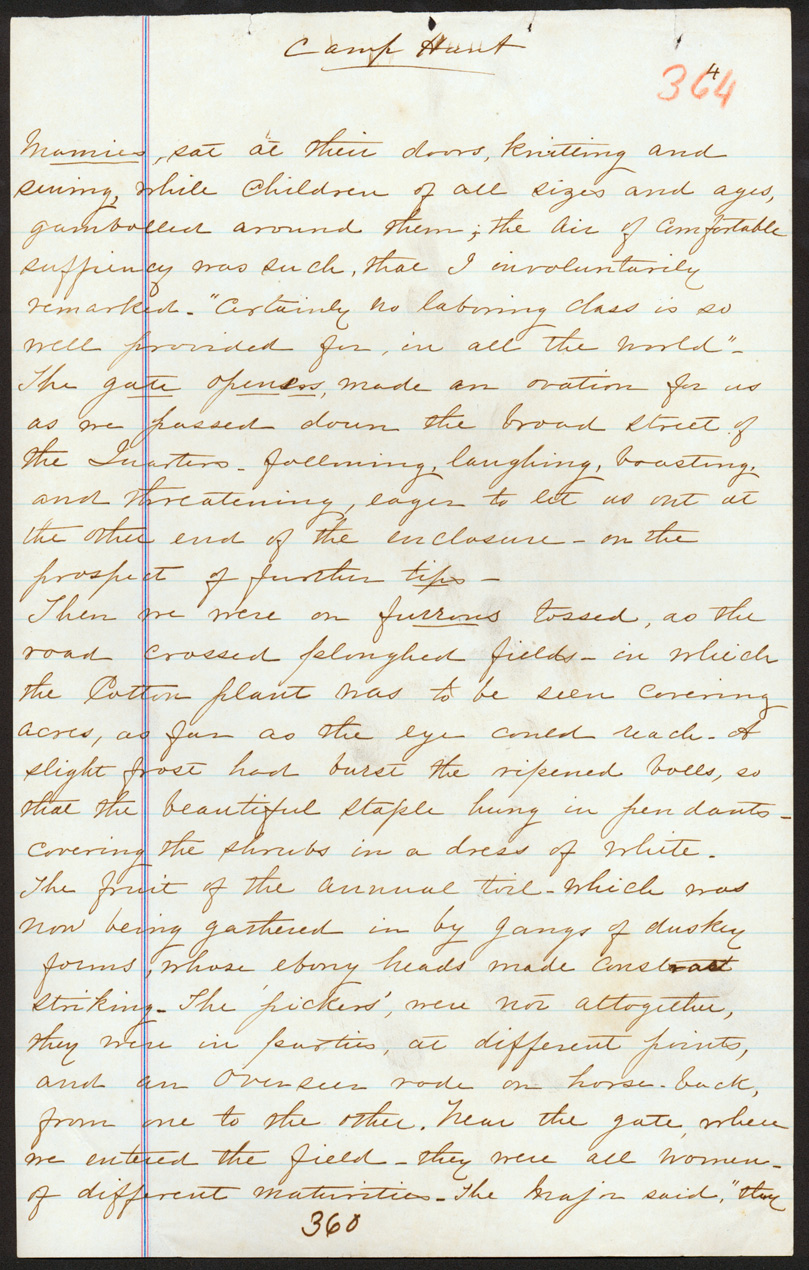 Camp Hunt
4
364
Mamies, sat at their doors, knitting and
sewing, while children of all sizes and ages,
gambolled around them; the air of comfortable
suffiency was such, that I involuntarily
remarked - "Certainly no laboring class is so
well provided for, in all the world" -
The gate openers, made an ovation for us
as we passed down the broad street of
the Quarters - following, laughing, boasting,
and threatening, eager to let us out at
the other end of the enclosure - on the
prospect of further tips -
Then we were on furrows tossed, as the
road crossed ploughed fields - in which
the Cotton plant was to be seen covering
acres, as far as the eye could reach - A
slight frost had burst the ripened bolls, so
that the beautiful staple hung in pendants -
covering the shrubs in a dress of white -
The fruit of the annual toil - which was
now being gathered in by gangs of duskey
forms, whose ebony heads made contrast
striking - The 'pickers', were not altogether,
they were in parties, at different points,
and an Overseer rode on horse-back,
from one to the other. Near the gate, where
we entered the field - they were all women -
of different maturities - The Major said, "they
360